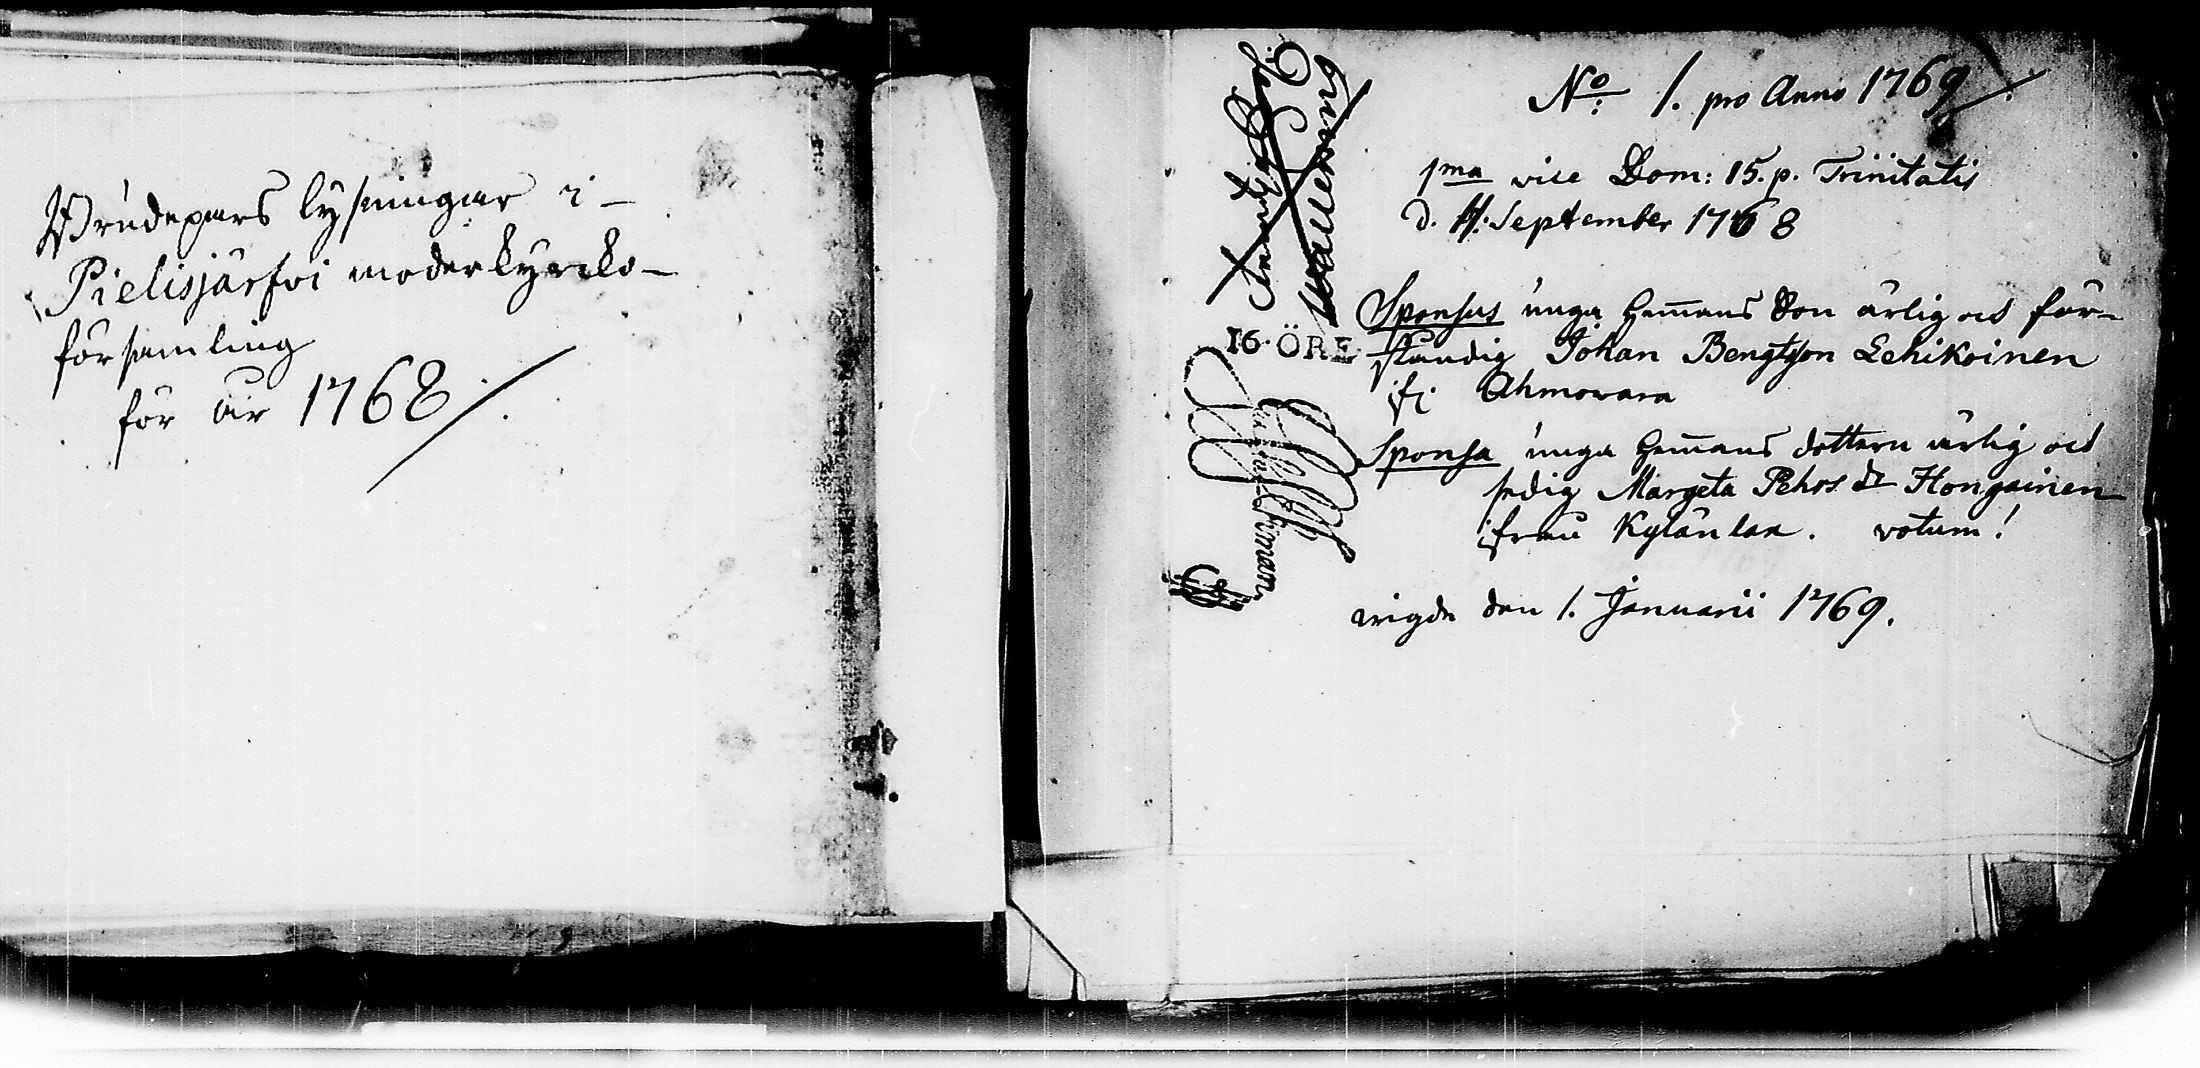 Brudepars lysningar i
Pielisjärfvi moderkyrcko-
församling
för år 1768
No: 1. pro Anno 1769
1ma vice Dom: 15. p. Trinitatis
d. 11. September 1768
Sponsus unga hem̅ans Son ärlig och för-
ståndig Johan Bengtsson Lehikoinen
ifr Ahmowara
Sponsa unga hem̅ans dottern ärlig och
sedig Margeta Pehrs dr Hongainen
ifrån Kylänlax. votum!
wigde den 1. Januarii 1769.
16. ÖRE